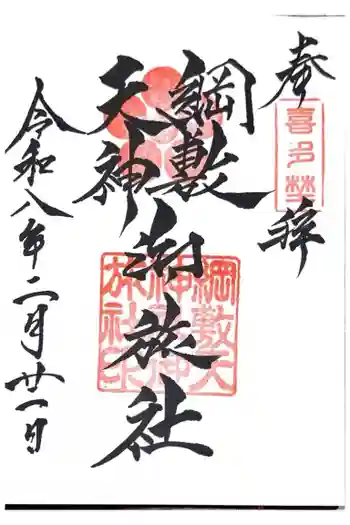 奉拝
喜多埜
綱敷
天神
御旅社
綱敷天
神御神
旅社印
令和八年二月廿一日